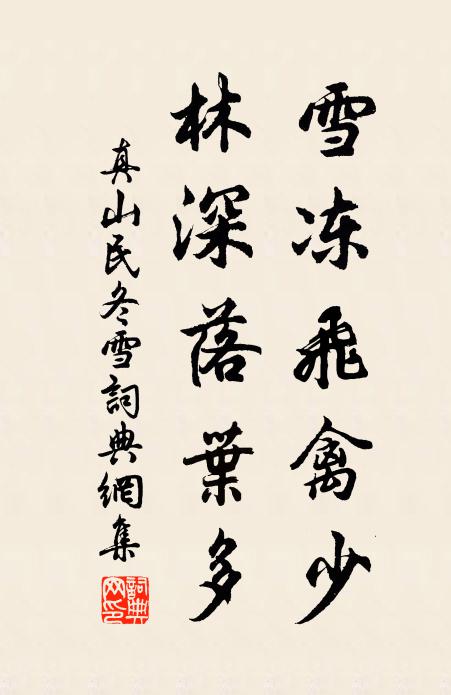 雪冻飛禽少
林深落葉多
真山民冬雪詞典網集
詞典网印